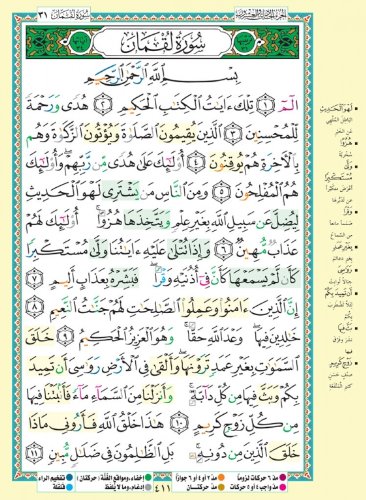 سُورَةُ لُقْمَان ٣١
سُورَةُ لُقْمَان
بِسْمِ ٱللَّهِ ٱلرَّحْمَٰنِ ٱلرَّحِيمِ
الٓمٓ ١ تِلْكَ ءَايَٰتُ ٱلْكِتَٰبِ ٱلْحَكِيمِ ٢ هُدًى وَرَحْمَةً
لِّلْمُحْسِنِينَ ٣ ٱلَّذِينَ يُقِيمُونَ ٱلصَّلَوٰةَ وَيُؤْتُونَ ٱلزَّكَوٰةَ وَهُم
بِٱلْءَاخِرَةِ هُمْ يُوقِنُونَ ٤ أُو۟لَٰٓئِكَ عَلَىٰ هُدًى مِّن رَّبِّهِمْ ۖ وَأُو۟لَٰٓئِكَ
هُمُ ٱلْمُفْلِحُونَ ٥ وَمِنَ ٱلنَّاسِ مَن يَشْتَرِى لَهْوَ ٱلْحَدِيثِ
لِيُضِلَّ عَن سَبِيلِ ٱللَّهِ بِغَيْرِ عِلْمٍ وَيَتَّخِذَهَا هُزُوًا ۚ أُو۟لَٰٓئِكَ لَهُمْ
عَذَابٌ مُّهِينٌ ٦ وَإِذَا تُتْلَىٰ عَلَيْهِ ءَايَٰتُنَا وَلَّىٰ مُسْتَكْبِرًا
كَأَن لَّمْ يَسْمَعْهَا كَأَنَّ فِىٓ أُذُنَيْهِ وَقْرًا ۖ فَبَشِّرْهُ بِعَذَابٍ أَلِيمٍ ٧
إِنَّ ٱلَّذِينَ ءَامَنُوا۟ وَعَمِلُوا۟ ٱلصَّٰلِحَٰتِ لَهُمْ جَنَّٰتُ ٱلنَّعِيمِ ٨
خَٰلِدِينَ فِيهَا ۖ وَعْدَ ٱللَّهِ حَقًّا ۚ وَهُوَ ٱلْعَزِيزُ ٱلْحَكِيمُ ٩ خَلَقَ
ٱلسَّمَٰوَٰتِ بِغَيْرِ عَمَدٍ تَرَوْنَهَا ۖ وَأَلْقَىٰ فِى ٱلْأَرْضِ رَوَٰسِىَ أَن تَمِيدَ
بِكُمْ وَبَثَّ فِيهَا مِن كُلِّ دَآبَّةٍ ۚ وَأَنزَلْنَا مِنَ ٱلسَّمَآءِ مَآءً فَأَنۢبَتْنَا فِيهَا
مِن كُلِّ زَوْجٍ كَرِيمٍ ١٠ هَٰذَا خَلْقُ ٱللَّهِ فَأَرُونِى مَاذَا
خَلَقَ ٱلَّذِينَ مِن دُونِهِۦ ۚ بَلِ ٱلظَّٰلِمُونَ فِى ضَلَٰلٍ مُّبِينٍ ١١
لَهْوَ الحَدِيثِ
الباطل المُلهي
عن الخير
هُزُوًا
وَقْرًا
بِغَيْرِ عَمَدٍ
أَنْ تَمِيدَ بِكُمْ
بَثَّ فِيهَا
زَوْجٍ كَرِيمٍ
مدّ ٦ حركات لزوماً
مدّ ٢ أو ٤ أو ٦ جوازاً
إخفاء، ومواقع الغُنَّة (حركتان)
تفخيم الراء
مدّ واجب ٤ أو ٥ حركات
مدّ حركتان
إدغام، وما لا يُلفظ
قلقلة
٤١١